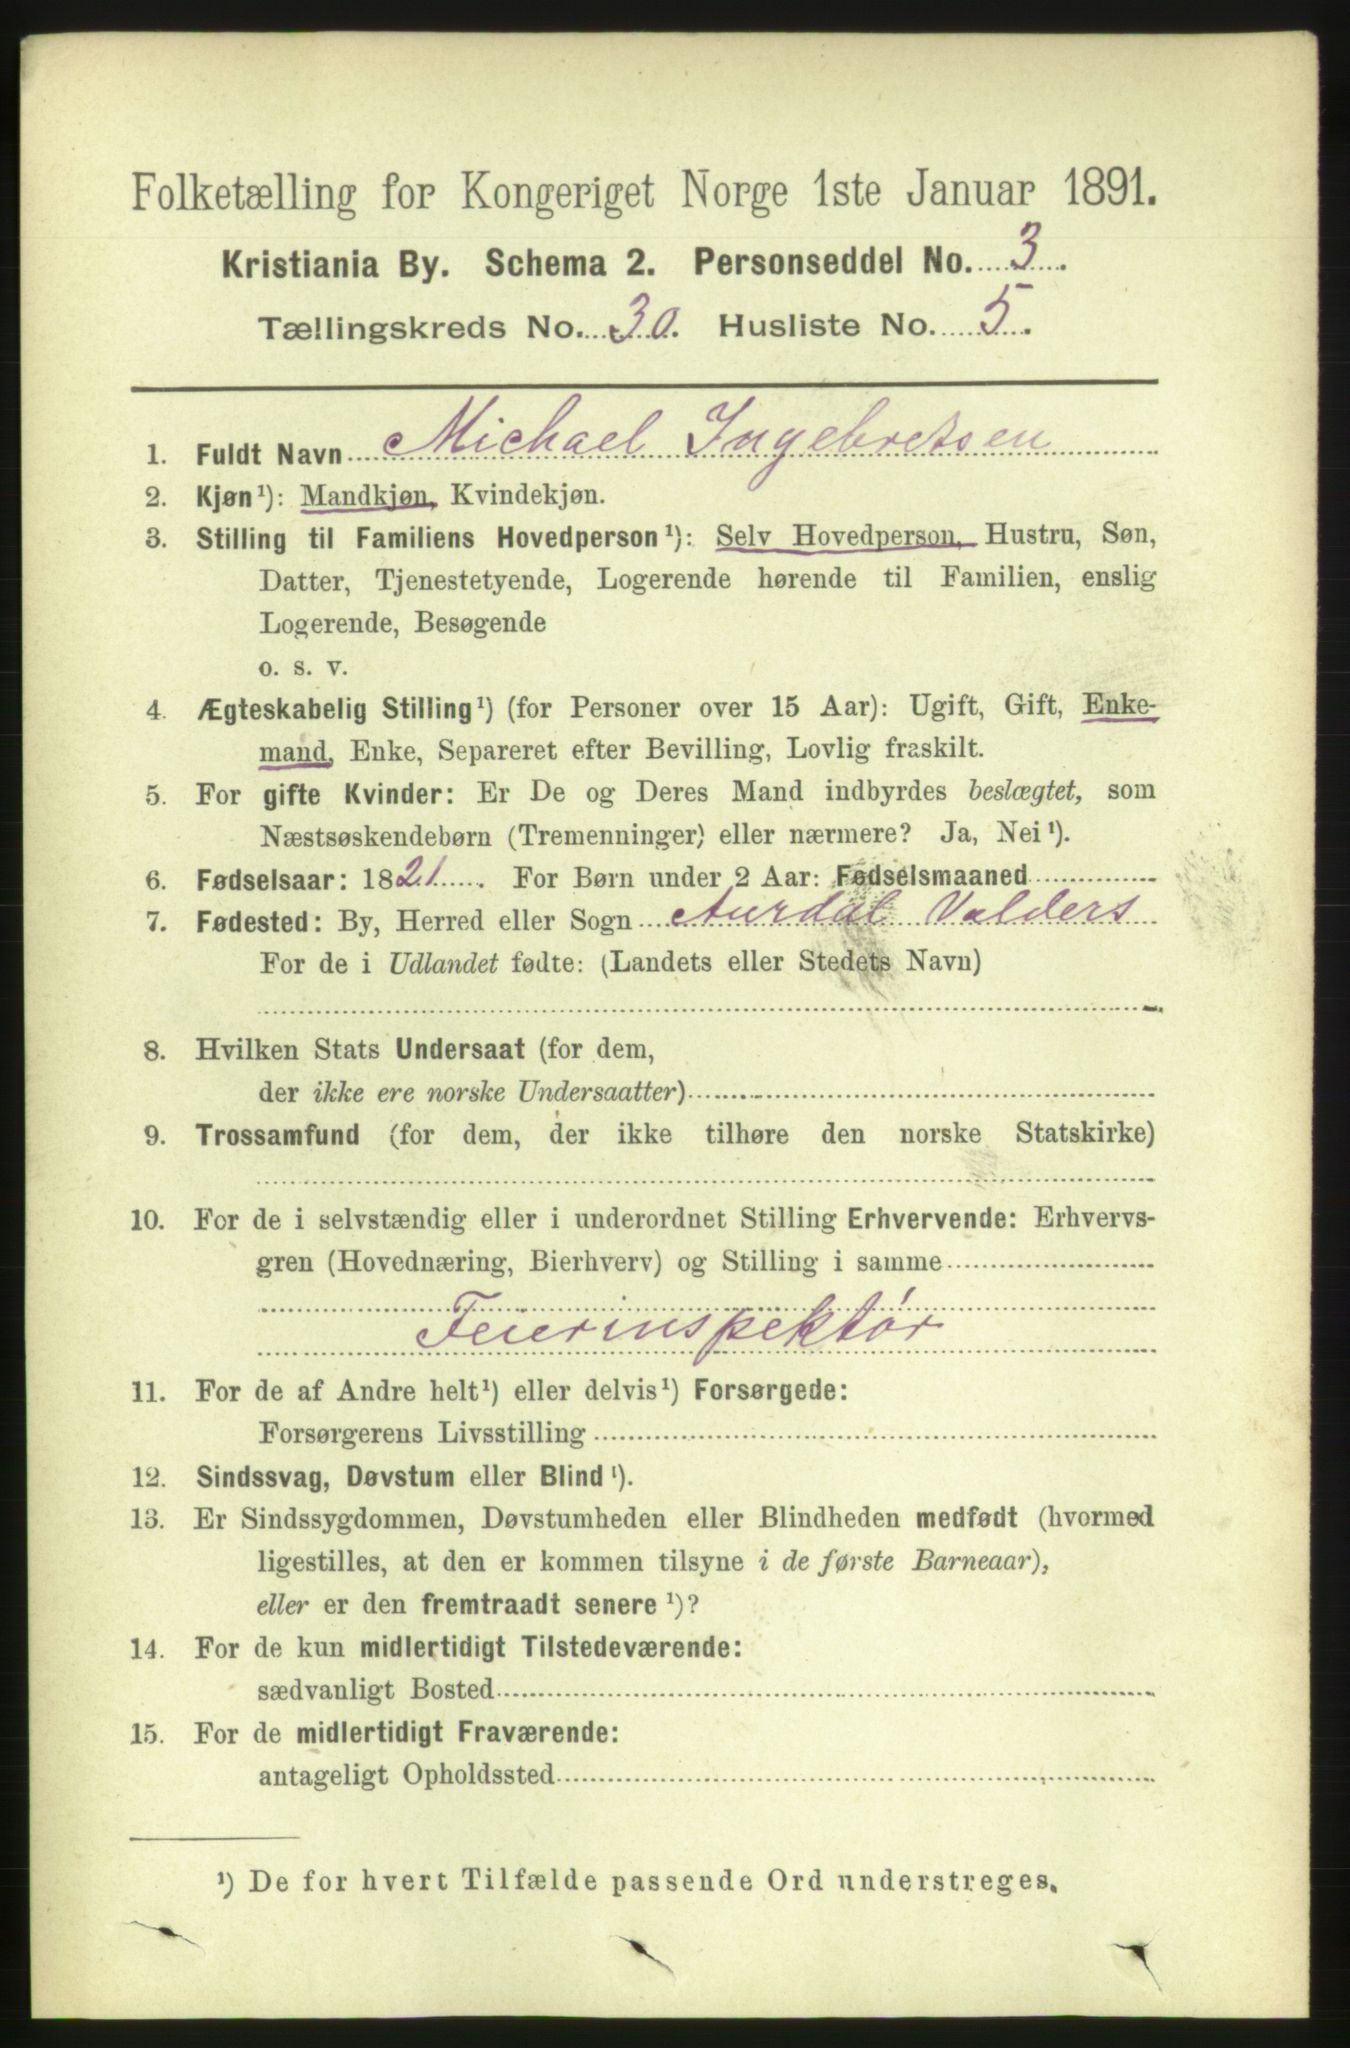 Folketælling for Kongeriget Norge 1ste Januar 1891.
Kristiania By. Schema 2. Personseddel No. 3.
Tællingskreds No. 30. Husliste No. 5.
1. Fuldt Navn Michael Ingebretsen
2. Kjøn¹): Mandkjøn, Kvindekjøn.
3. Stilling til Familiens Hovedperson¹): Selv Hovedperson, Hustru, Søn,
Datter, Tjenestetyende, Logerende hørende til Familien, enslig
Logerende, Besøgende
o. s. v.
4. Ægteskabelig Stilling¹) (for Personer over 15 Aar): Ugift, Gift, Enke-
mand, Enke, Separeret efter Bevilling, Lovlig fraskilt.
5. For gifte Kvinder: Er De og Deres Mand indbyrdes beslægtet, som
Næstsøskendebørn (Tremenninger) eller nærmere? Ja, Nei¹).
6. Fødselsaar: 1821. For Børn under 2 Aar: Fødselsmaaned
7. Fødested: By, Herred eller Sogn Aurdal Valders
For de i Udlandet fødte: (Landets eller Stedets Navn)
8. Hvilken Stats Undersaat (for dem,
der ikke ere norske Undersaatter)
9. Trossamfund (for dem, der ikke tilhøre den norske Statskirke)
10. For de i selvstændig eller i underordnet Stilling Erhvervende: Erhvervs-
gren (Hovednæring, Bierhverv) og Stilling i samme
Feierinspektør
11. For de af Andre helt¹) eller delvis¹) Forsørgede:
Forsørgerens Livsstilling
12. Sindssvag, Døvstum eller Blind¹).
13. Er Sindssygdommen, Døvstumheden eller Blindheden medfødt (hvormed
ligestilles, at den er kommen tilsyne i de første Barneaar),
eller er den fremtraadt senere¹)?
14. For de kun midlertidigt Tilstedeværende:
sædvanligt Bosted
15. For de midlertidigt Fraværende:
antageligt Opholdssted
¹) De for hvert Tilfælde passende Ord understreges.